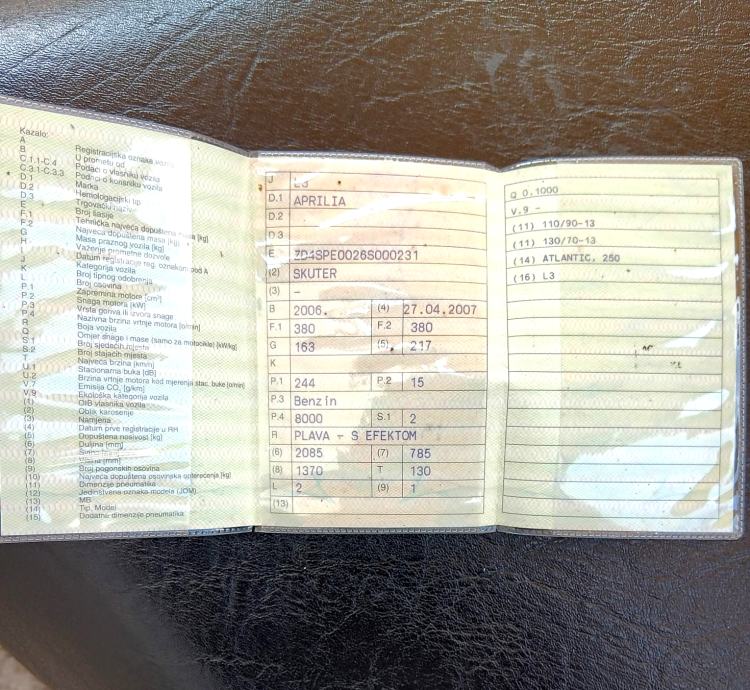 Kazalo:
A Registracijska oznaka vozila
B U prometu od
C.1.1-C.4 Podaci o vlasniku vozila
C.3.1-C.3.3 Podaci o korisniku vozila
D.1 Marka
D.2 Homologacijski tip
D.3 Trgovački naziv
E Broj šasije
F.1 Tehnička najveća dopuštena masa [kg]
F.2 Najveća dopuštena masa [kg]
G Masa praznog vozila [kg]
H Važenje prometne dozvole
I Datum registracije reg. oznakom pod A
J Kategorija vozila
K Broj tipnog odobrenja
L Broj osovina
P.1 Zapremina motora [cm³]
P.2 Snaga motora [kW]
P.3 Vrsta goriva ili izvora snage
P.4 Nazivna brzina vrtnje motora [o/min]
R Boja vozila
Q Omjer snage i mase (samo za motocikle) [kW/kg]
S.1 Broj sjedećih mjesta
S.2 Broj stajaćih mjesta
T Najveća brzina [km/h]
U.1 Stacionarna buka [dB]
U.2 Brzina vrtnje motora kod mjerenja stac. buke [o/min]
V.7 Emisija CO₂ [g/km]
V.9 Ekološka kategorija vozila
(1) OIB vlasnika vozila
(2) Oblik karoserije
(3) Namjena
(4) Datum prve registracije u RH
(5) Dopuštena nosivost [kg]
(6) Duljina [mm]
(7) [mm]
(8) [mm]
(9) Broj pogonskih osovina
(10) Najveća dopuštena osovinska opterećenja [kg]
(11) Dimenzije pneumatika
(12) Jedinstvena oznaka modela (JOM)
(13) MB
(14) Tip, Model
(15) Dodatne dimenzije pneumatika
J L3
D.1 APRILIA
D.2
D.3
E ZD4SPE0026S000231
(2) SKUTER
(3) –
B 2006. (4) 27.04.2007
F.1 380 F.2 380
G 163 (5) 217
K
P.1 244 P.2 15
P.3 Benzin
P.4 8000 S.1 2
R PLAVA - S EFEKTOM
(6) 2085 (7) 785
(8) 1370 T 130
L 2 (9) 1
(13)
Q 0.1000
V.9 -
(11) 110/90-13
(11) 130/70-13
(14) ATLANTIC, 250
(16) L3